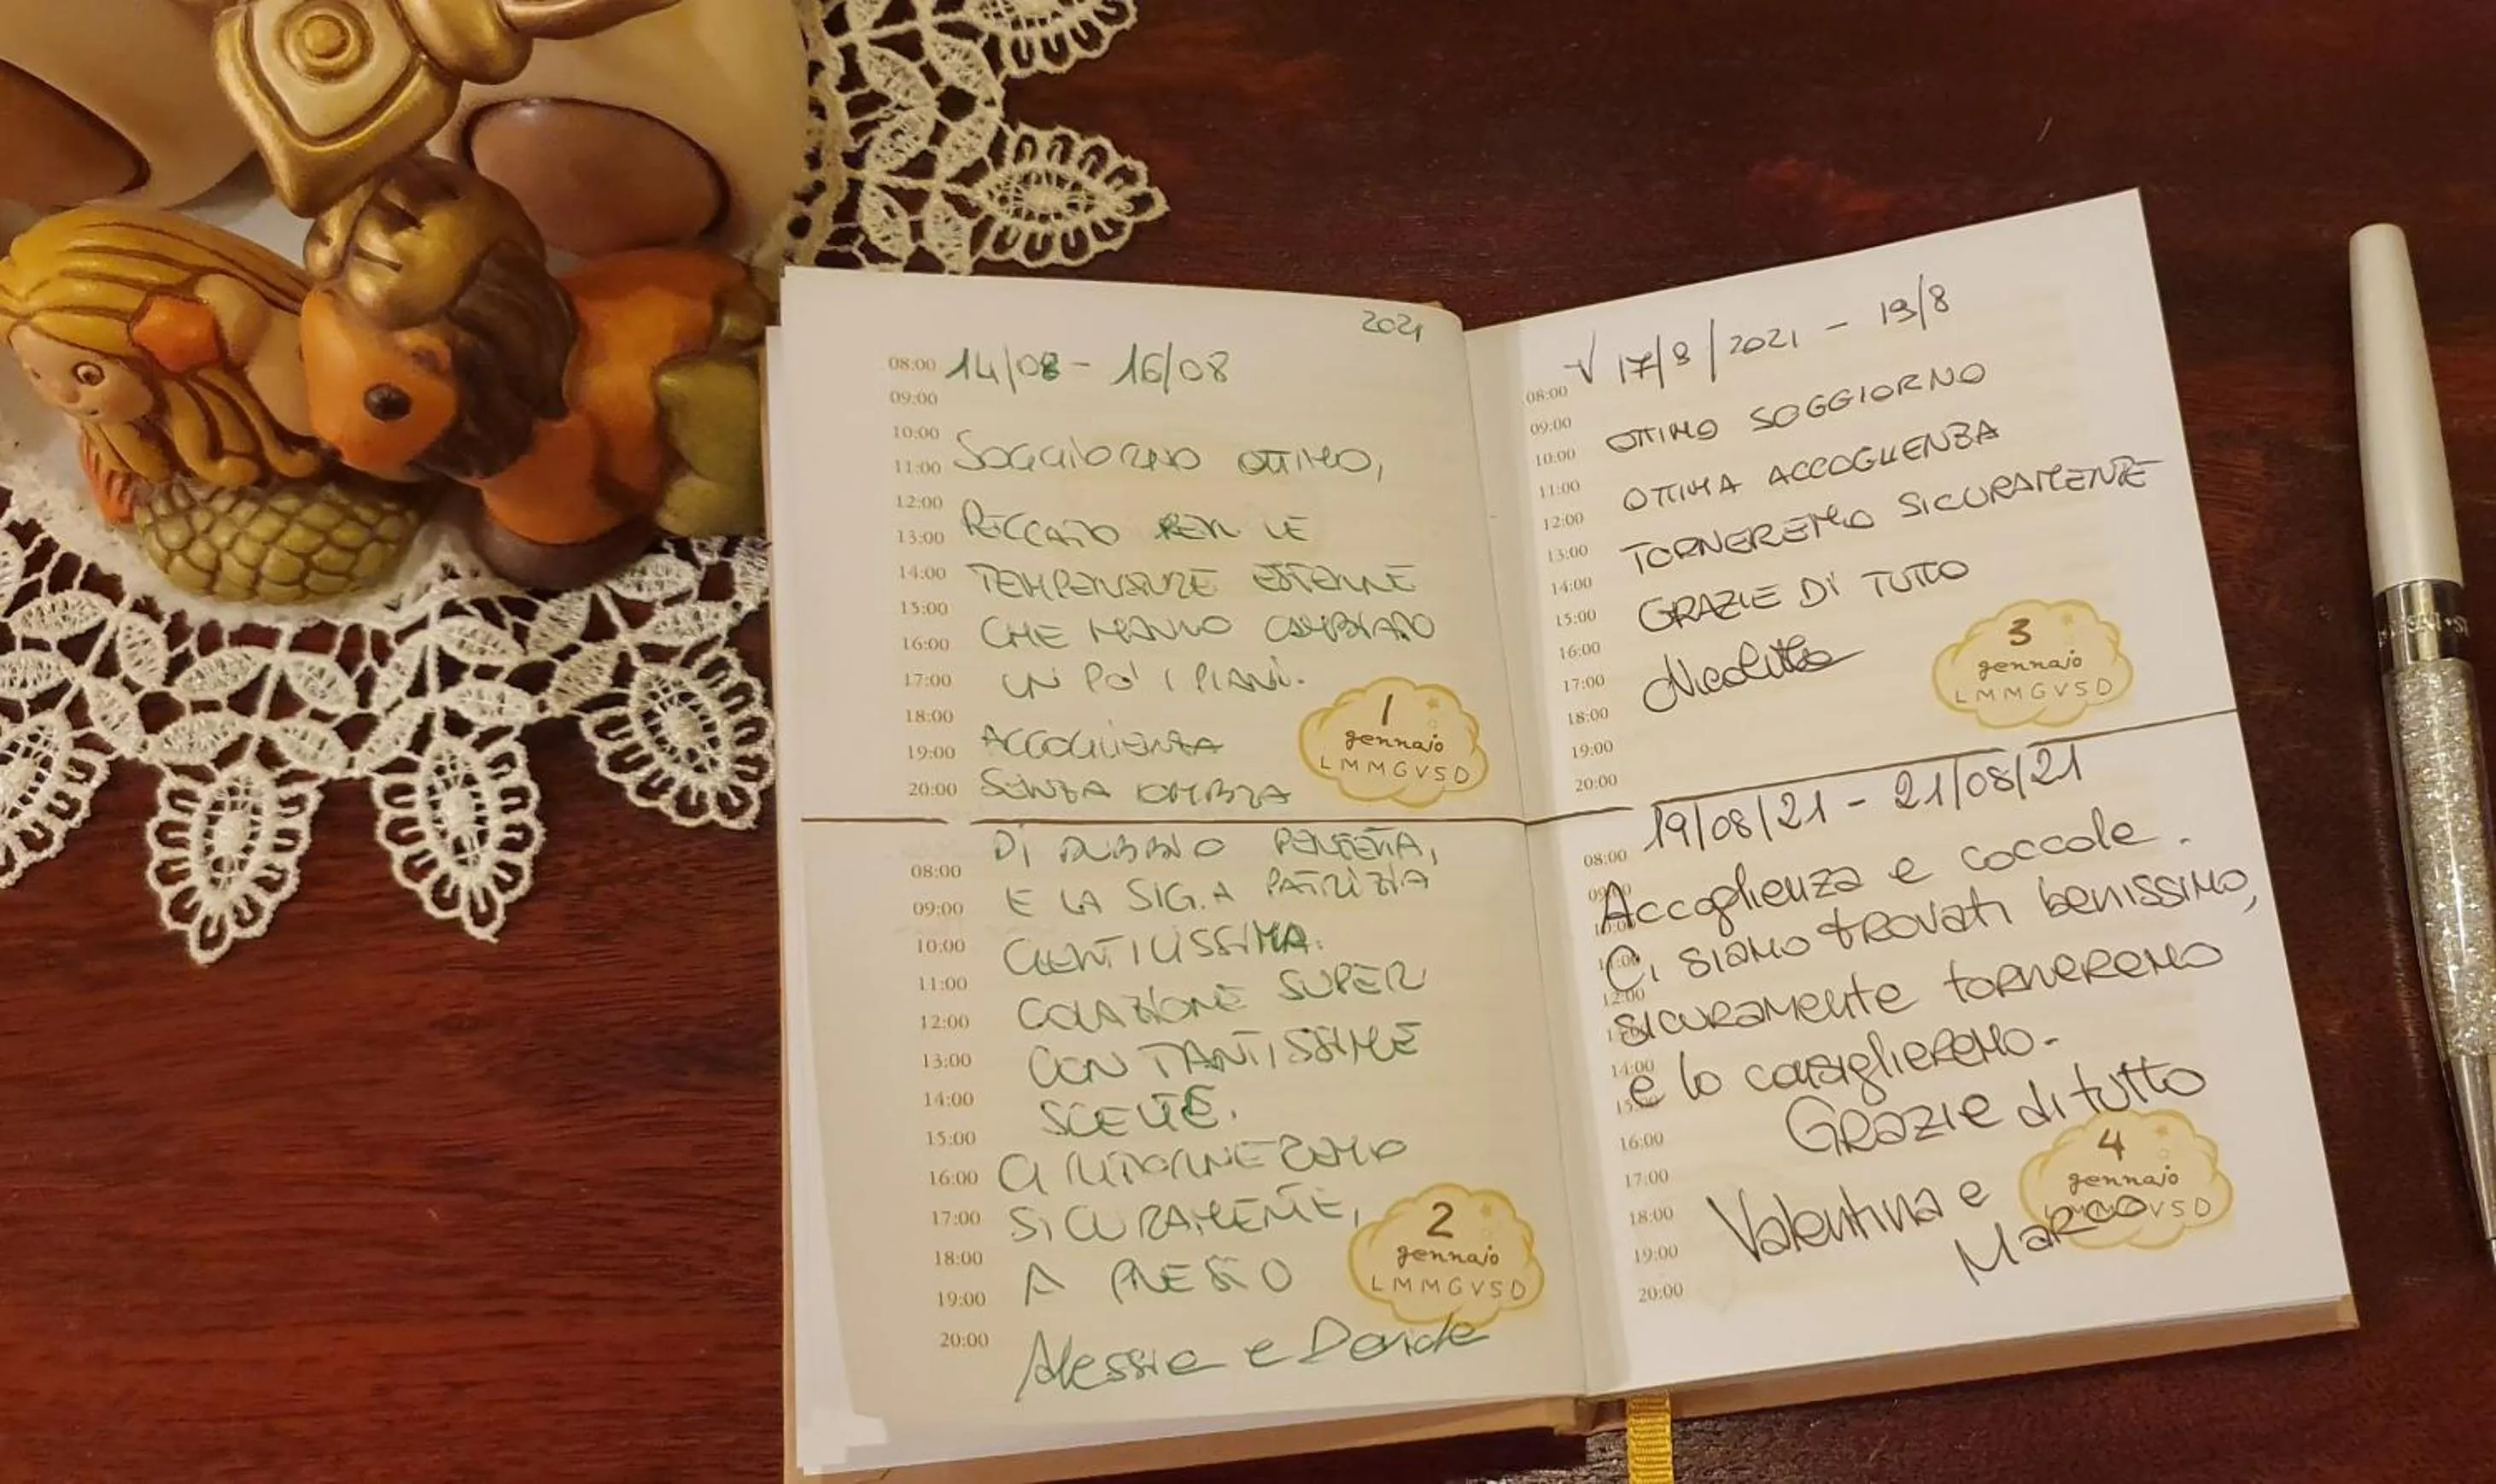 2021
08:00 14/08 - 16/08
09:00
10:00
11:00 SOGGIORNO OTTIMO,
12:00
13:00 PECCATO PER LE
14:00 TEMPERATURE ESTERNE
15:00
16:00 CHE HANNO CAMBIATO
17:00 UN PO' I PIANI.
18:00
19:00 ACCOGLIENZA
20:00 SENZA OMBRA
1
gennaio
L M M G V S D
DI DUBBIO PERFETTA,
08:00
09:00 E LA SIG.A PATRIZIA
10:00 GENTILISSIMA.
11:00
12:00 COLAZIONE SUPER
13:00 CON TANTISSIME
14:00 SCELTE.
15:00
16:00 CI RITORNEREMO
17:00 SICURAMENTE,
18:00
19:00 A PRESTO
20:00
2
gennaio
L M M G V S D
Alessia e Davide
√ 17/8/2021 - 19/8
08:00
09:00 OTTIMO SOGGIORNO
10:00
11:00 OTTIMA ACCOGLIENZA
12:00
13:00 TORNEREMO SICURAMENTE
14:00
15:00 GRAZIE DI TUTTO
16:00
17:00
18:00
19:00
20:00
3
gennaio
L M M G V S D
19/08/21 - 21/08/21
08:00
09:00
Accoglienza e coccole.
10:00
11:00
Ci siamo trovati benissimo,
12:00
sicuramente torneremo
14:00
e lo consiglieremo.
15:00
Grazie di tutto
16:00
17:00
18:00
Valentina e
19:00
Marco
20:00
4
gennaio
V S D